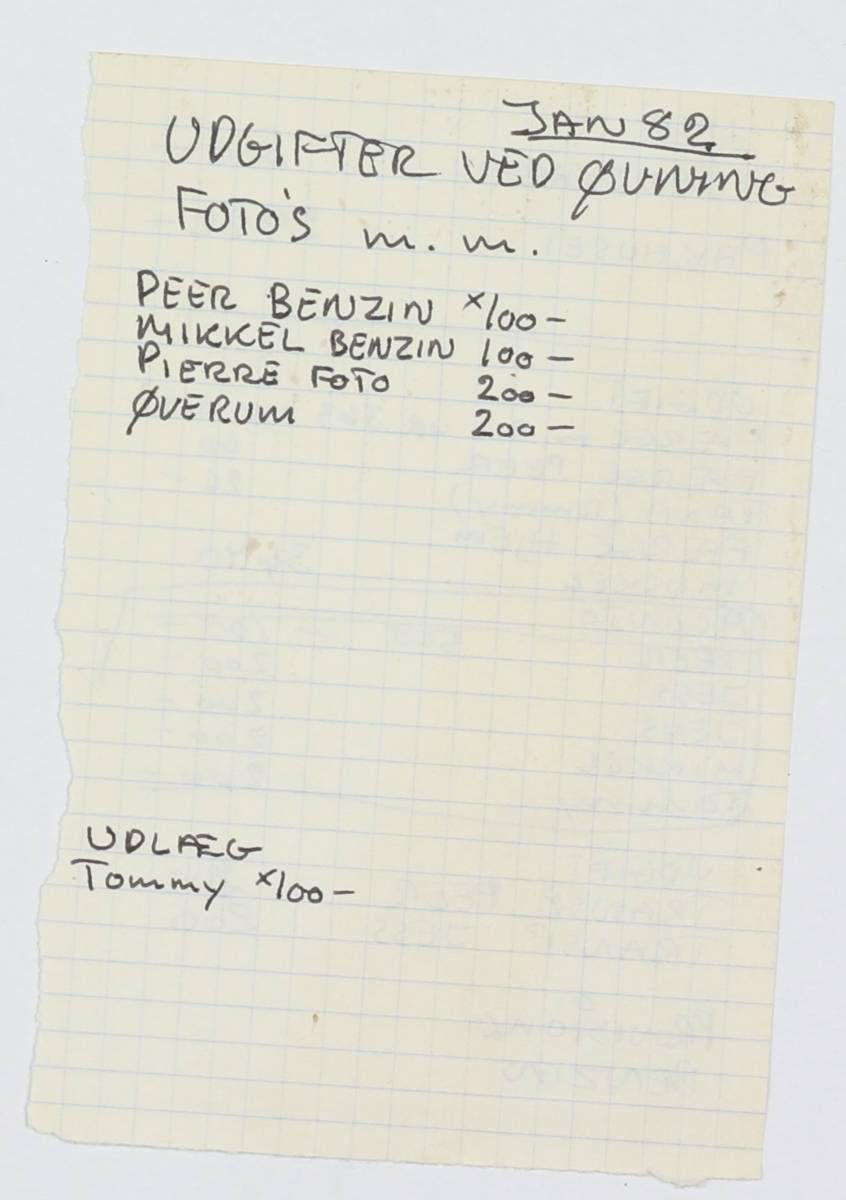 JAN 82
UDGIFTER VED ØVNING
FOTO'S m.m.
PEER BENZIN x100-
MIKKEL BENZIN 100-
PIERRE FOTO 200-
ØVERUM 200-
UDLÆG
Tommy x100-